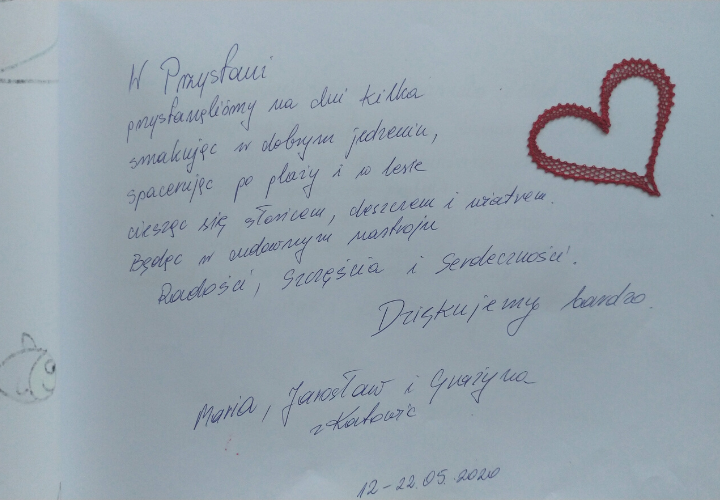 W Przystani
przystanęliśmy na dni kilka
smakując w dobrym jedzeniu,
spacerując po plaży i w lesie
ciesząc się słońcem, deszczem i wiatrem.
Będąc w cudownym nastroju
Radości, Szczęścia i Serdeczności.
Dziękujemy bardzo.
Maria, Jarosław i Grażyna
z Katowic
12-22.05.2020